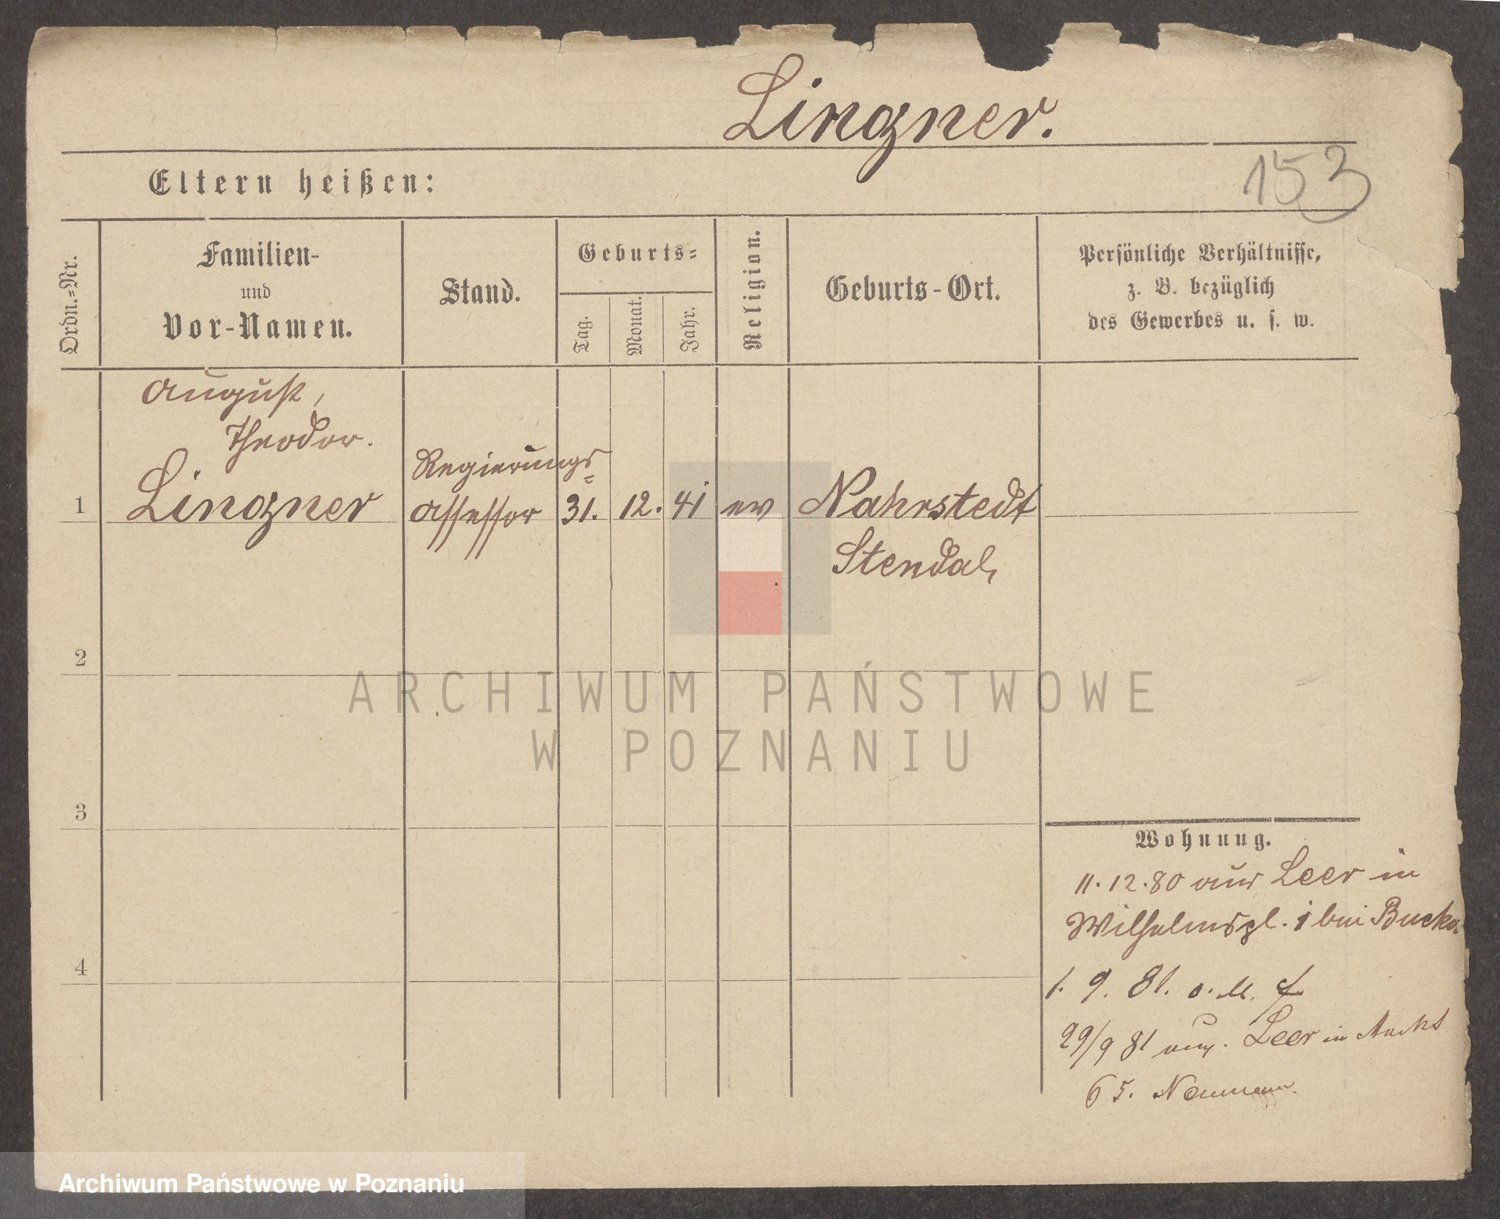 Lingner.
153
Eltern heißen:
Ordn.-Nr.
Familien-
und
Vor-Namen.
Stand.
Geburts-
Tag.
Monat.
Jahr.
Religion.
Geburts-Ort.
Persönliche Verhältnisse,
z. B. bezüglich
des Gewerbes u. s. w.
August,
Theodor.
1 Lingner
Regierungs-
Assessor
31. 12. 41 ev Nahrstedt
Stendal,
2
3
4
Wohnung.
11.12.80 aus Leer in
Wilhelmspl. 1 bei
1. 9. 81. o. M.
29/9 81 Leer in Markt
65. Naumann.
ARCHIWUM PAŃSTWOWE
W POZNANIU
Archiwum Państwowe w Poznaniu